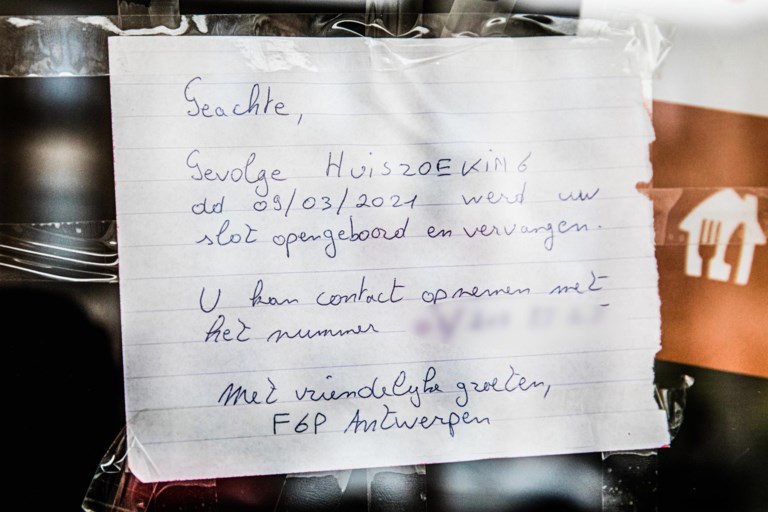 Geachte,
Gevolge HUISZOEKING
dd 09/03/2021 werd uw
slot opengeboord en vervangen.
U kan contact opnemen met
het nummer
Met vriendelijke groeten,
FGP Antwerpen